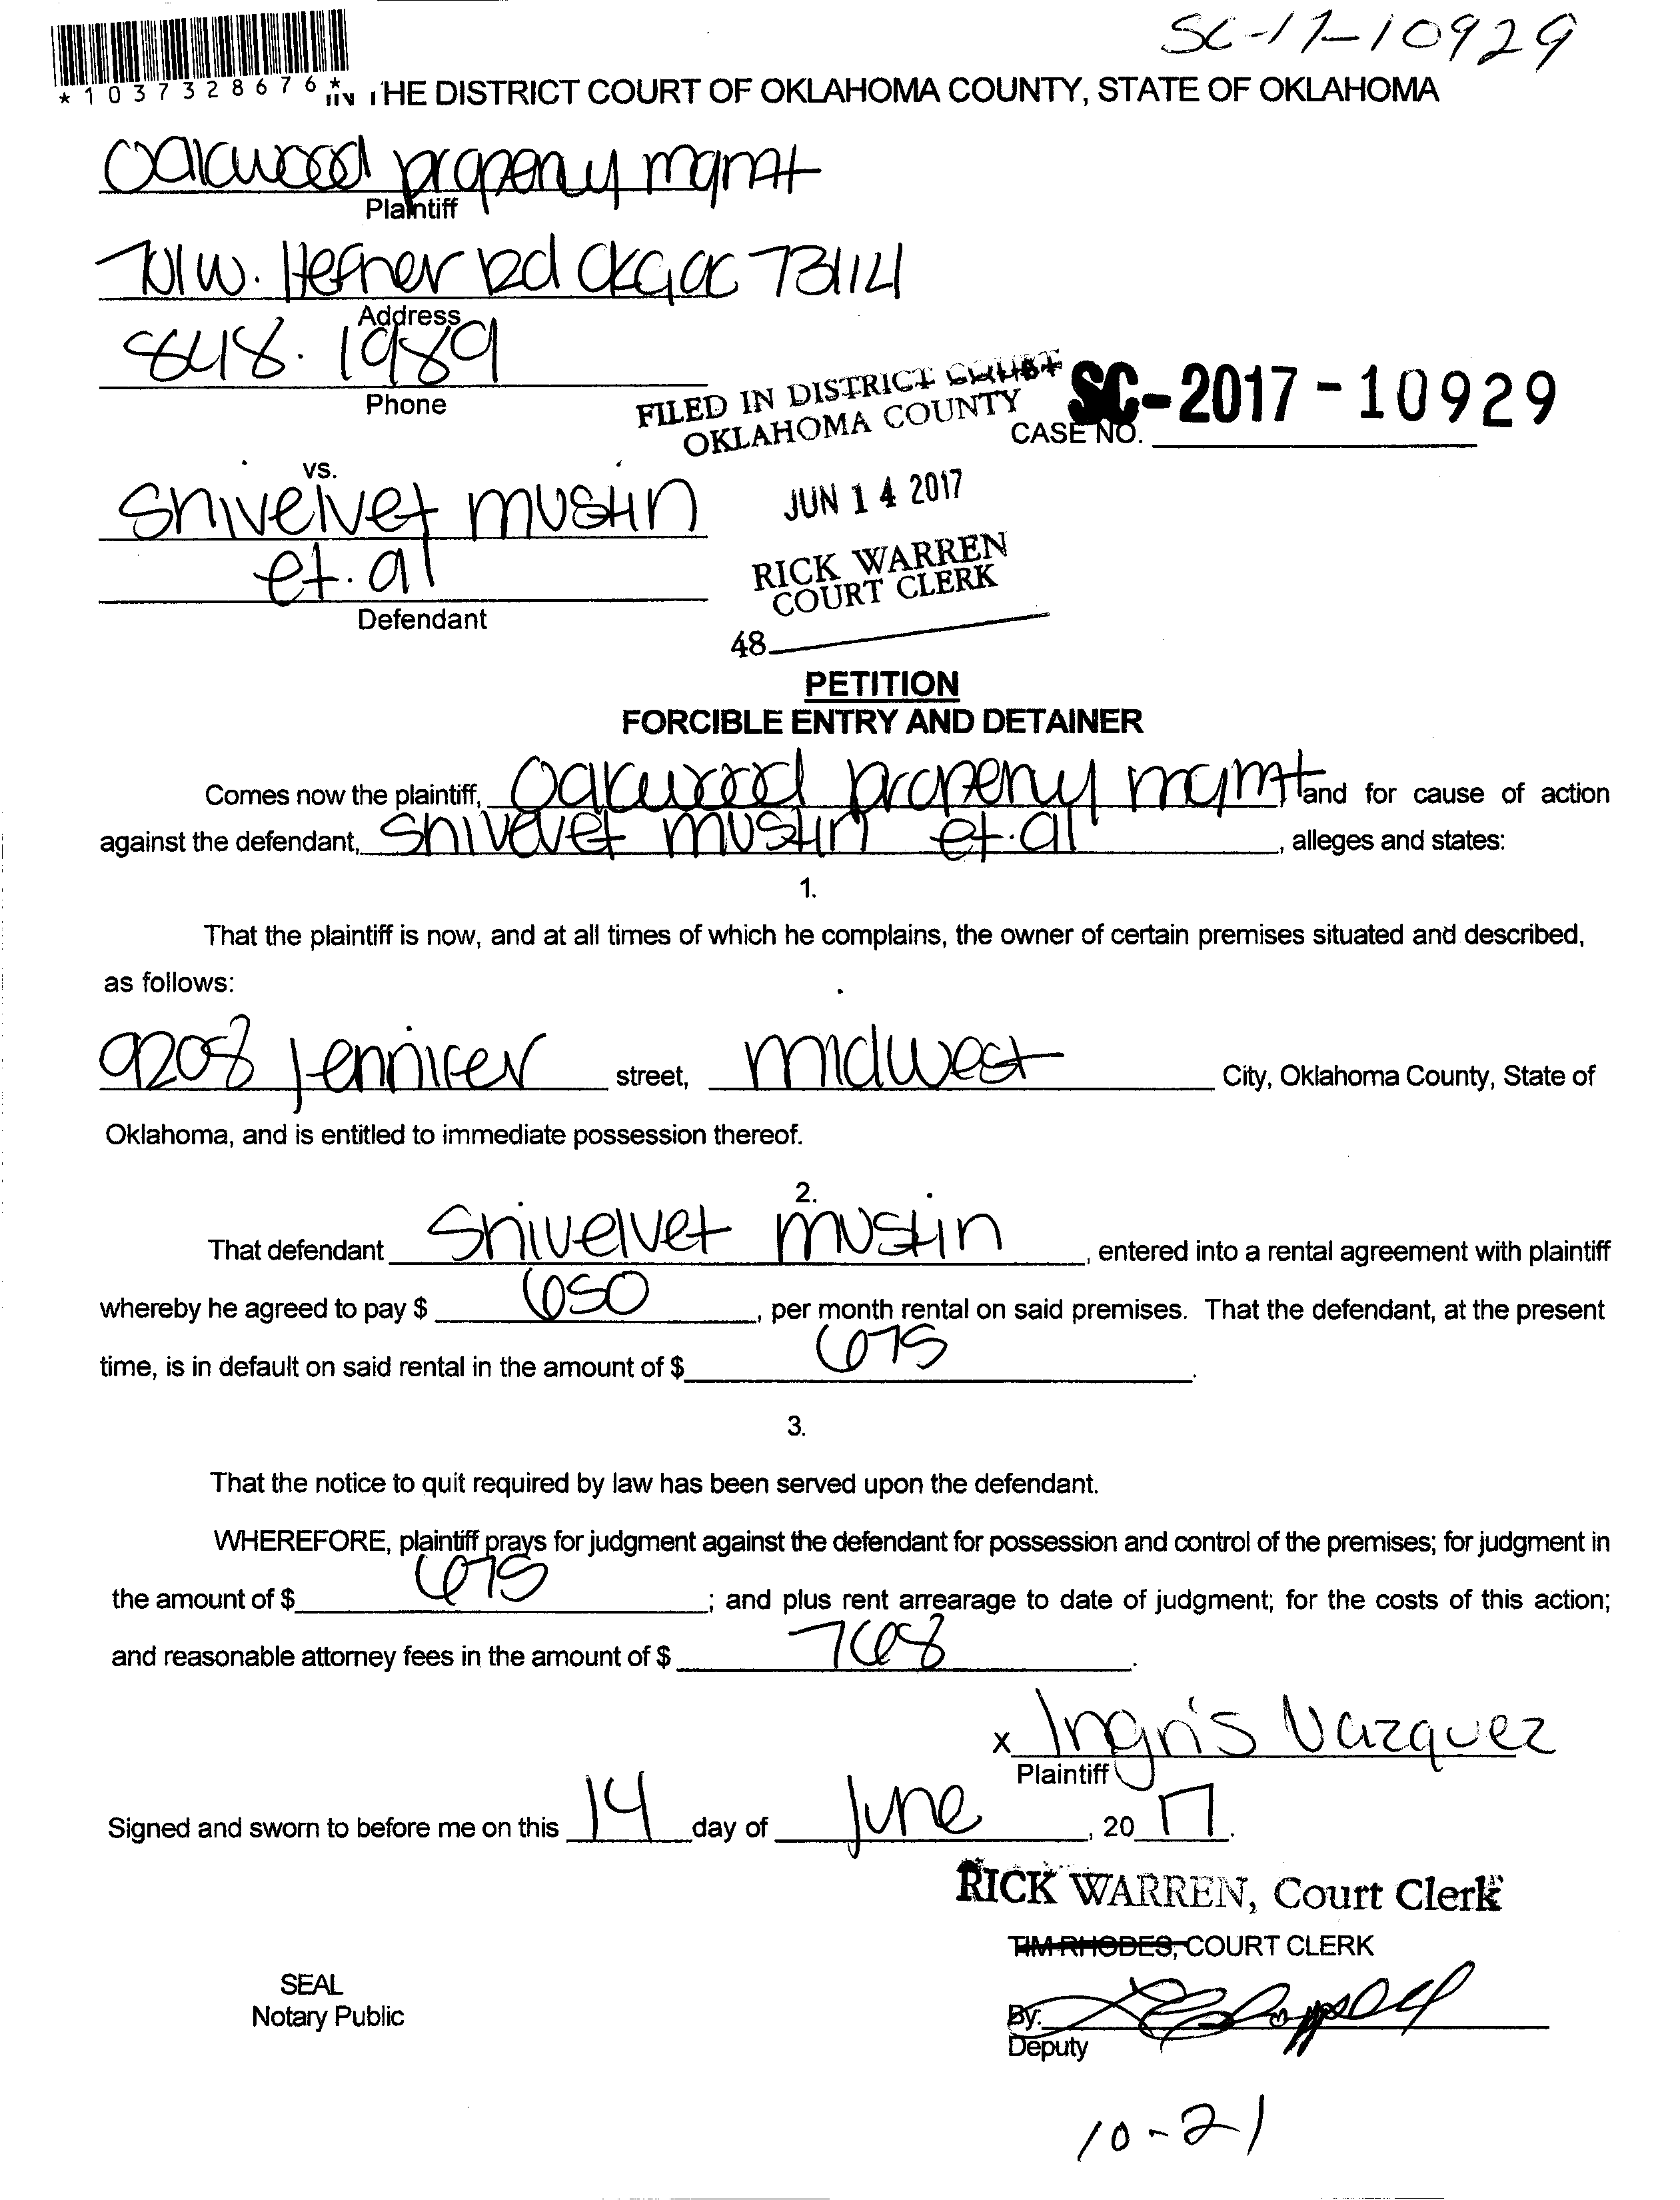 SC-17-10929
*1037328676*
IN THE DISTRICT COURT OF OKLAHOMA COUNTY, STATE OF OKLAHOMA
Oakwood property mgmt
Plaintiff
701 W. Hefner Rd OKC, OK 73114
Address
848.1989
Phone
FILED IN DISTRICT COURT
OKLAHOMA COUNTY
SC-2017-10929
CASE NO.
vs.
JUN 14 2017
Shivelvet Mustin
et.al
RICK WARREN
COURT CLERK
Defendant
48
PETITION
FORCIBLE ENTRY AND DETAINER
Comes now the plaintiff, Oakwood property mgmt and for cause of action
against the defendant, Shivelvet Mustin et.al, alleges and states:
1.
That the plaintiff is now, and at all times of which he complains, the owner of certain premises situated and described,
as follows:
9208 Jennifer street, midwest City, Oklahoma County, State of
Oklahoma, and is entitled to immediate possession thereof.
2.
That defendant Shivelvet Mustin, entered into a rental agreement with plaintiff
whereby he agreed to pay $ 650, per month rental on said premises. That the defendant, at the present
time, is in default on said rental in the amount of $ 675.
3.
That the notice to quit required by law has been served upon the defendant.
WHEREFORE, plaintiff prays for judgment against the defendant for possession and control of the premises; for judgment in
the amount of $ 675; and plus rent arrearage to date of judgment; for the costs of this action;
and reasonable attorney fees in the amount of $ 768.
x Ingris Vazquez
Plaintiff
Signed and sworn to before me on this 14 day of June, 2017.
RICK WARREN, Court Clerk
TIM RHODES, COURT CLERK
SEAL
Notary Public
By:
Deputy
10-21